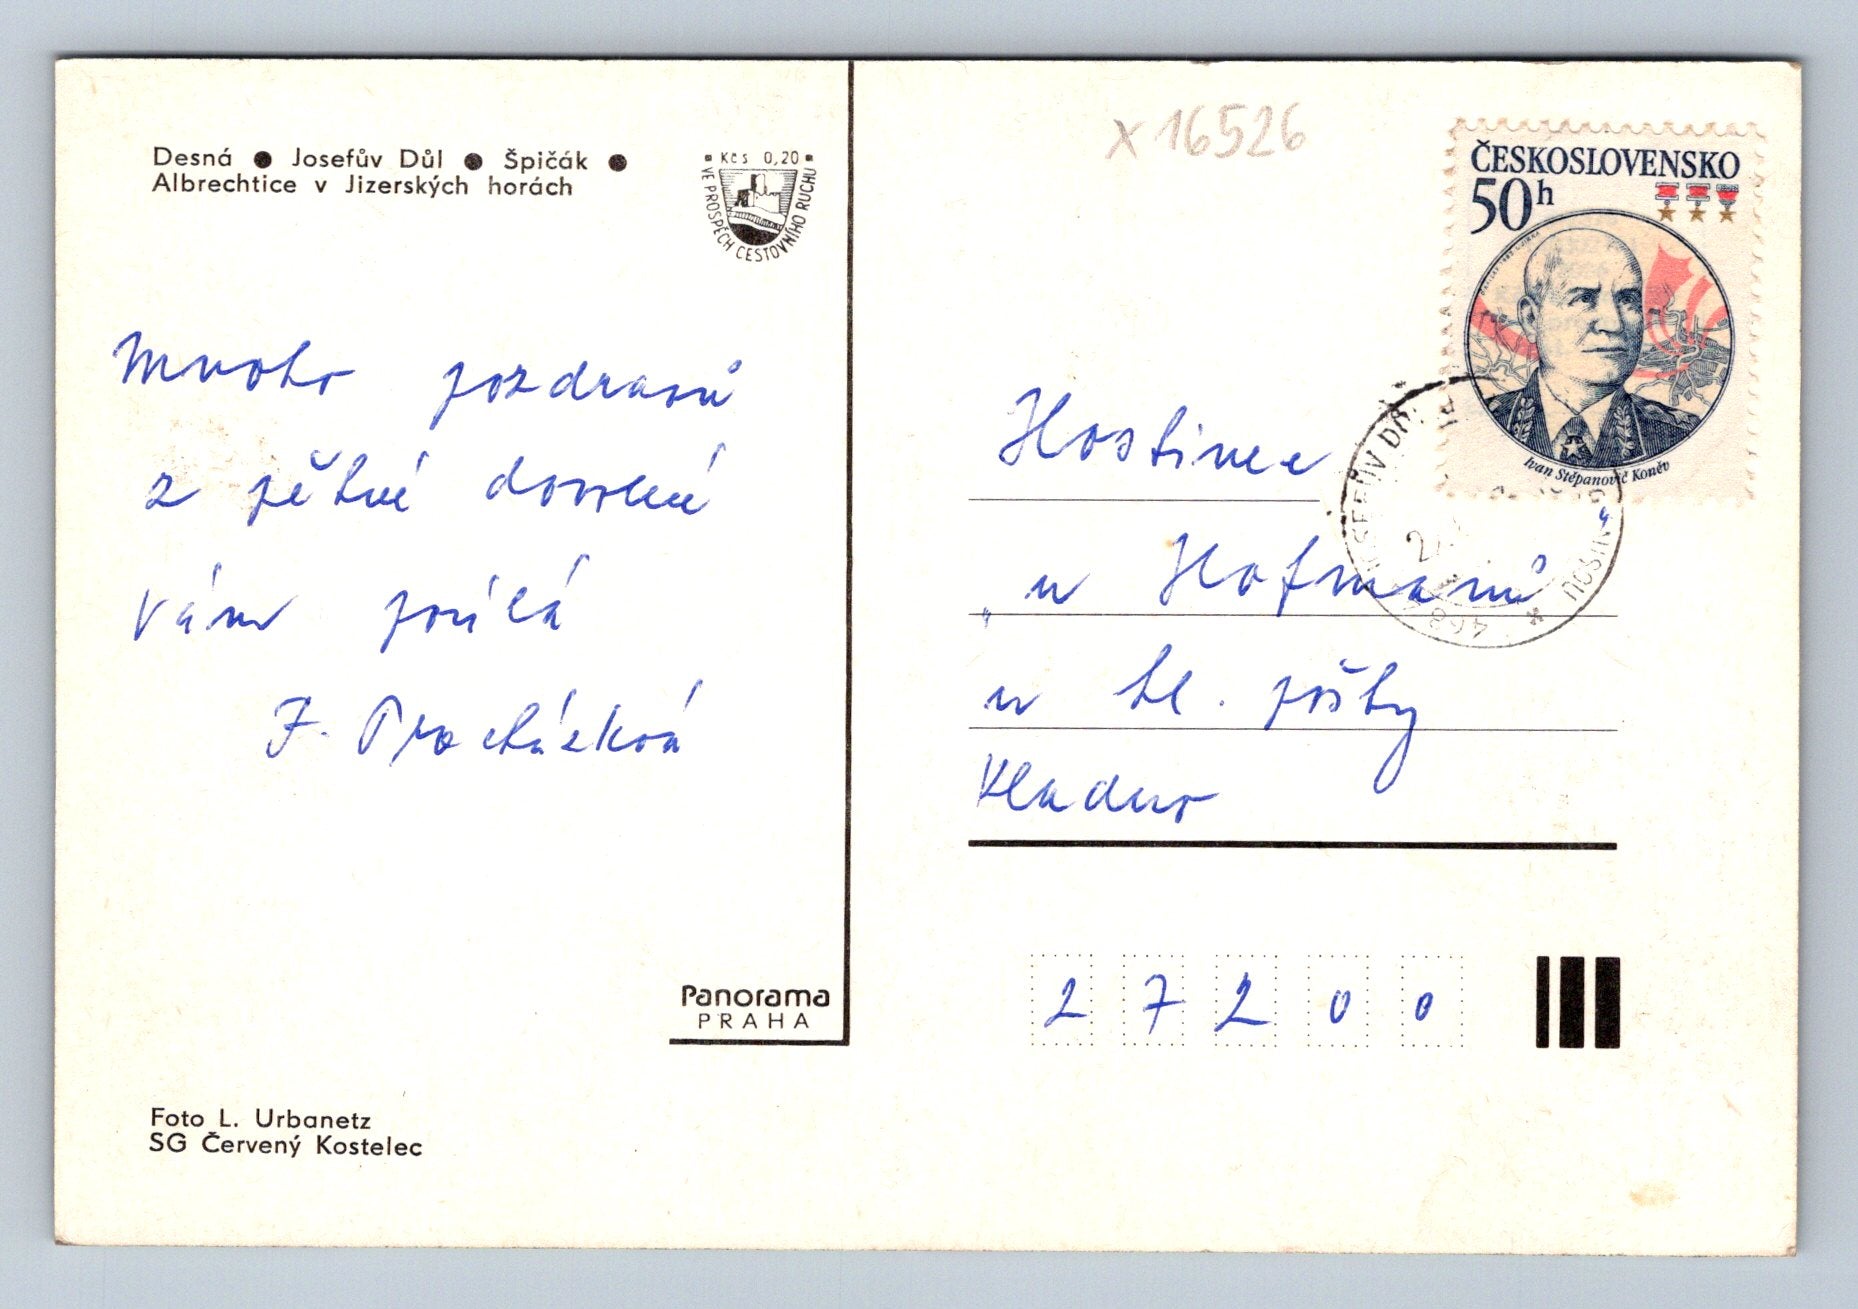 Desná ● Josefův Důl ● Špičák ●
Albrechtice v Jizerských horách
Kčs 0,20
VE PROSPĚCH CESTOVNÍHO RUCHU
Mnoho pozdravů
z pěkné dovolené
vám posílá
J. Procházková
Panorama
PRAHA
Foto L. Urbanetz
SG Červený Kostelec
X 16526
ČESKOSLOVENSKO
50h
Ivan Stěpanovič Koněv
JOSEFŮV DŮL
NOSTI NOSTI
468
Hostinec
„u Hofmanů“
u hl. pošty
Kladno
27200